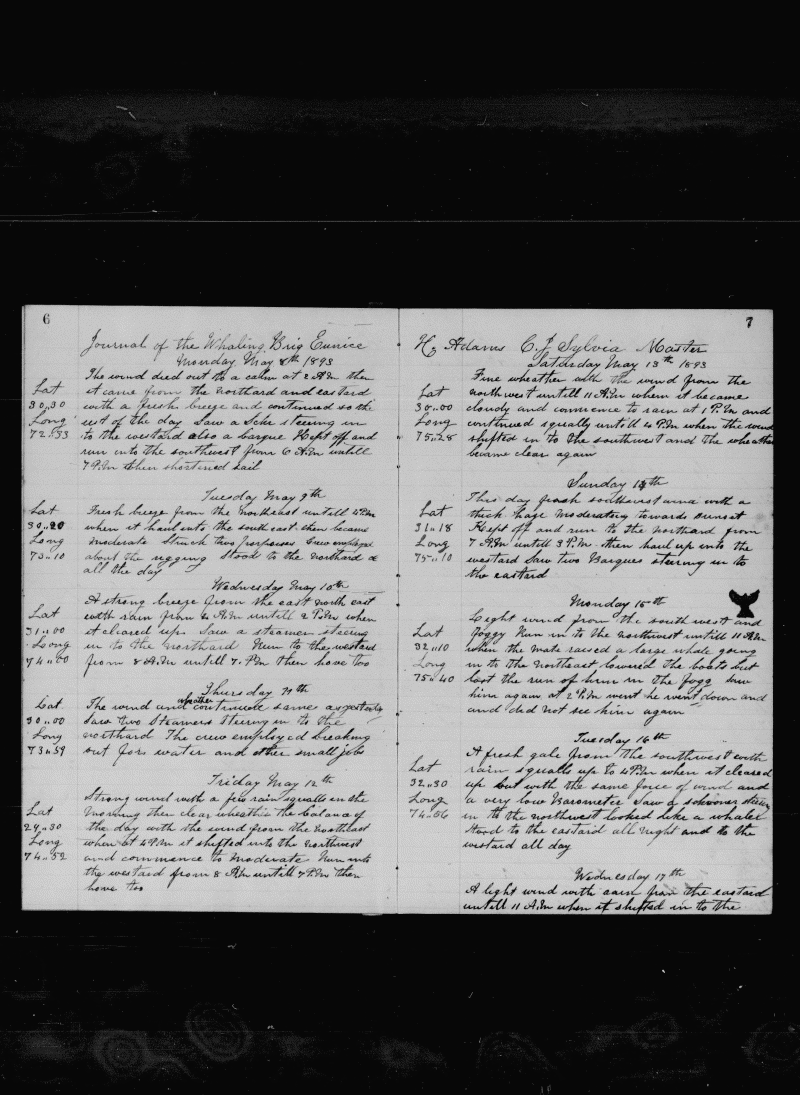 6
Journal of the Whaling Brig Eunice
Monday May 8th 1893
The wind died out to a calm at 2 A.M then
Lat it came from the northard and eastard
30..30 with a fresh breeze and continued so the
Long rest of the day Saw a Schr steering in
72..33 to the westard also a barque Kept off and
run into the southwest from 6 A.M untill
7 P.M then shortened sail
Tuesday May 9th
Lat Fresh breeze from the northeast untill 4 P.M
30..20 when it haul into the south east then became
Long moderate Struck two porpoises Crew employed
73..10 about the rigging Stood to the northard &
all the day
Wednesday May 10th
A strong breeze from the east north east
Lat with rain from 4 A.M untill 2 P.M when
31..00 it cleared up Saw a steamer steering
Long in to the northard Run to the westard
74..00 from 8 A.M untill 7. P.M then hove too
Thursday 11th
Lat The wind and wheather continued same as yesterday
30..00 Saw two Steamers steering in to the
Long northard The crew employed breaking
73..59 out for water and other small jobs
Friday May 12th
Strong wind with a few rain squalls in the
Lat morning then clear wheather the balance of
29..30 the day with the wind from the northeast
Long when at 4 P.M it shifted into the northwest
74..52 and commence to moderate Run into
the westard from 8 A.M untill 7 P.M then
hove too
7
Hz Adams C. J. Sylvia Master
Saturday May 13th 1893
Fine wheather with the wind from the
Lat northwest untill 11 A.M when it became
30..00 cloudy and commence to rain at 1 P.M and
Long continued squally untill 4 P.M when the wind
75..28 shifted in to the southwest and the wheather
became clear again
Sunday 14th
This day fresh southwest wind with a
Lat thick haze moderating towards sunset
31..18 Kept off and run to the northard from
Long 7 A.M untill 3 P.M then haul up into the
75..10 westard Saw two Barques steering in to
the eastard
Monday 15th
Light wind from the south west and
Lat foggy Run in to the northwest untill 11 A.M
32..10 when the mate raised a large whale going
Long in to the northeast lowered the boats but
75..40 lost the run of him in the fogg Saw
him again at 2 P.M went he went down and
and did not see him again
Tuesday 16th
A fresh gale from the southwest with
Lat rain squalls up to 4 P.M when it cleared
32..30 up but with the same force of wind and
Long a very low Barometer Saw a schooner steering
74..56 in to the northwest looked like a whaler
Stood to the eastard all night and to the
westard all day
Wednesday 17th
A light wind with rain from the eastard
untill 11 A.M when it shifted in to the